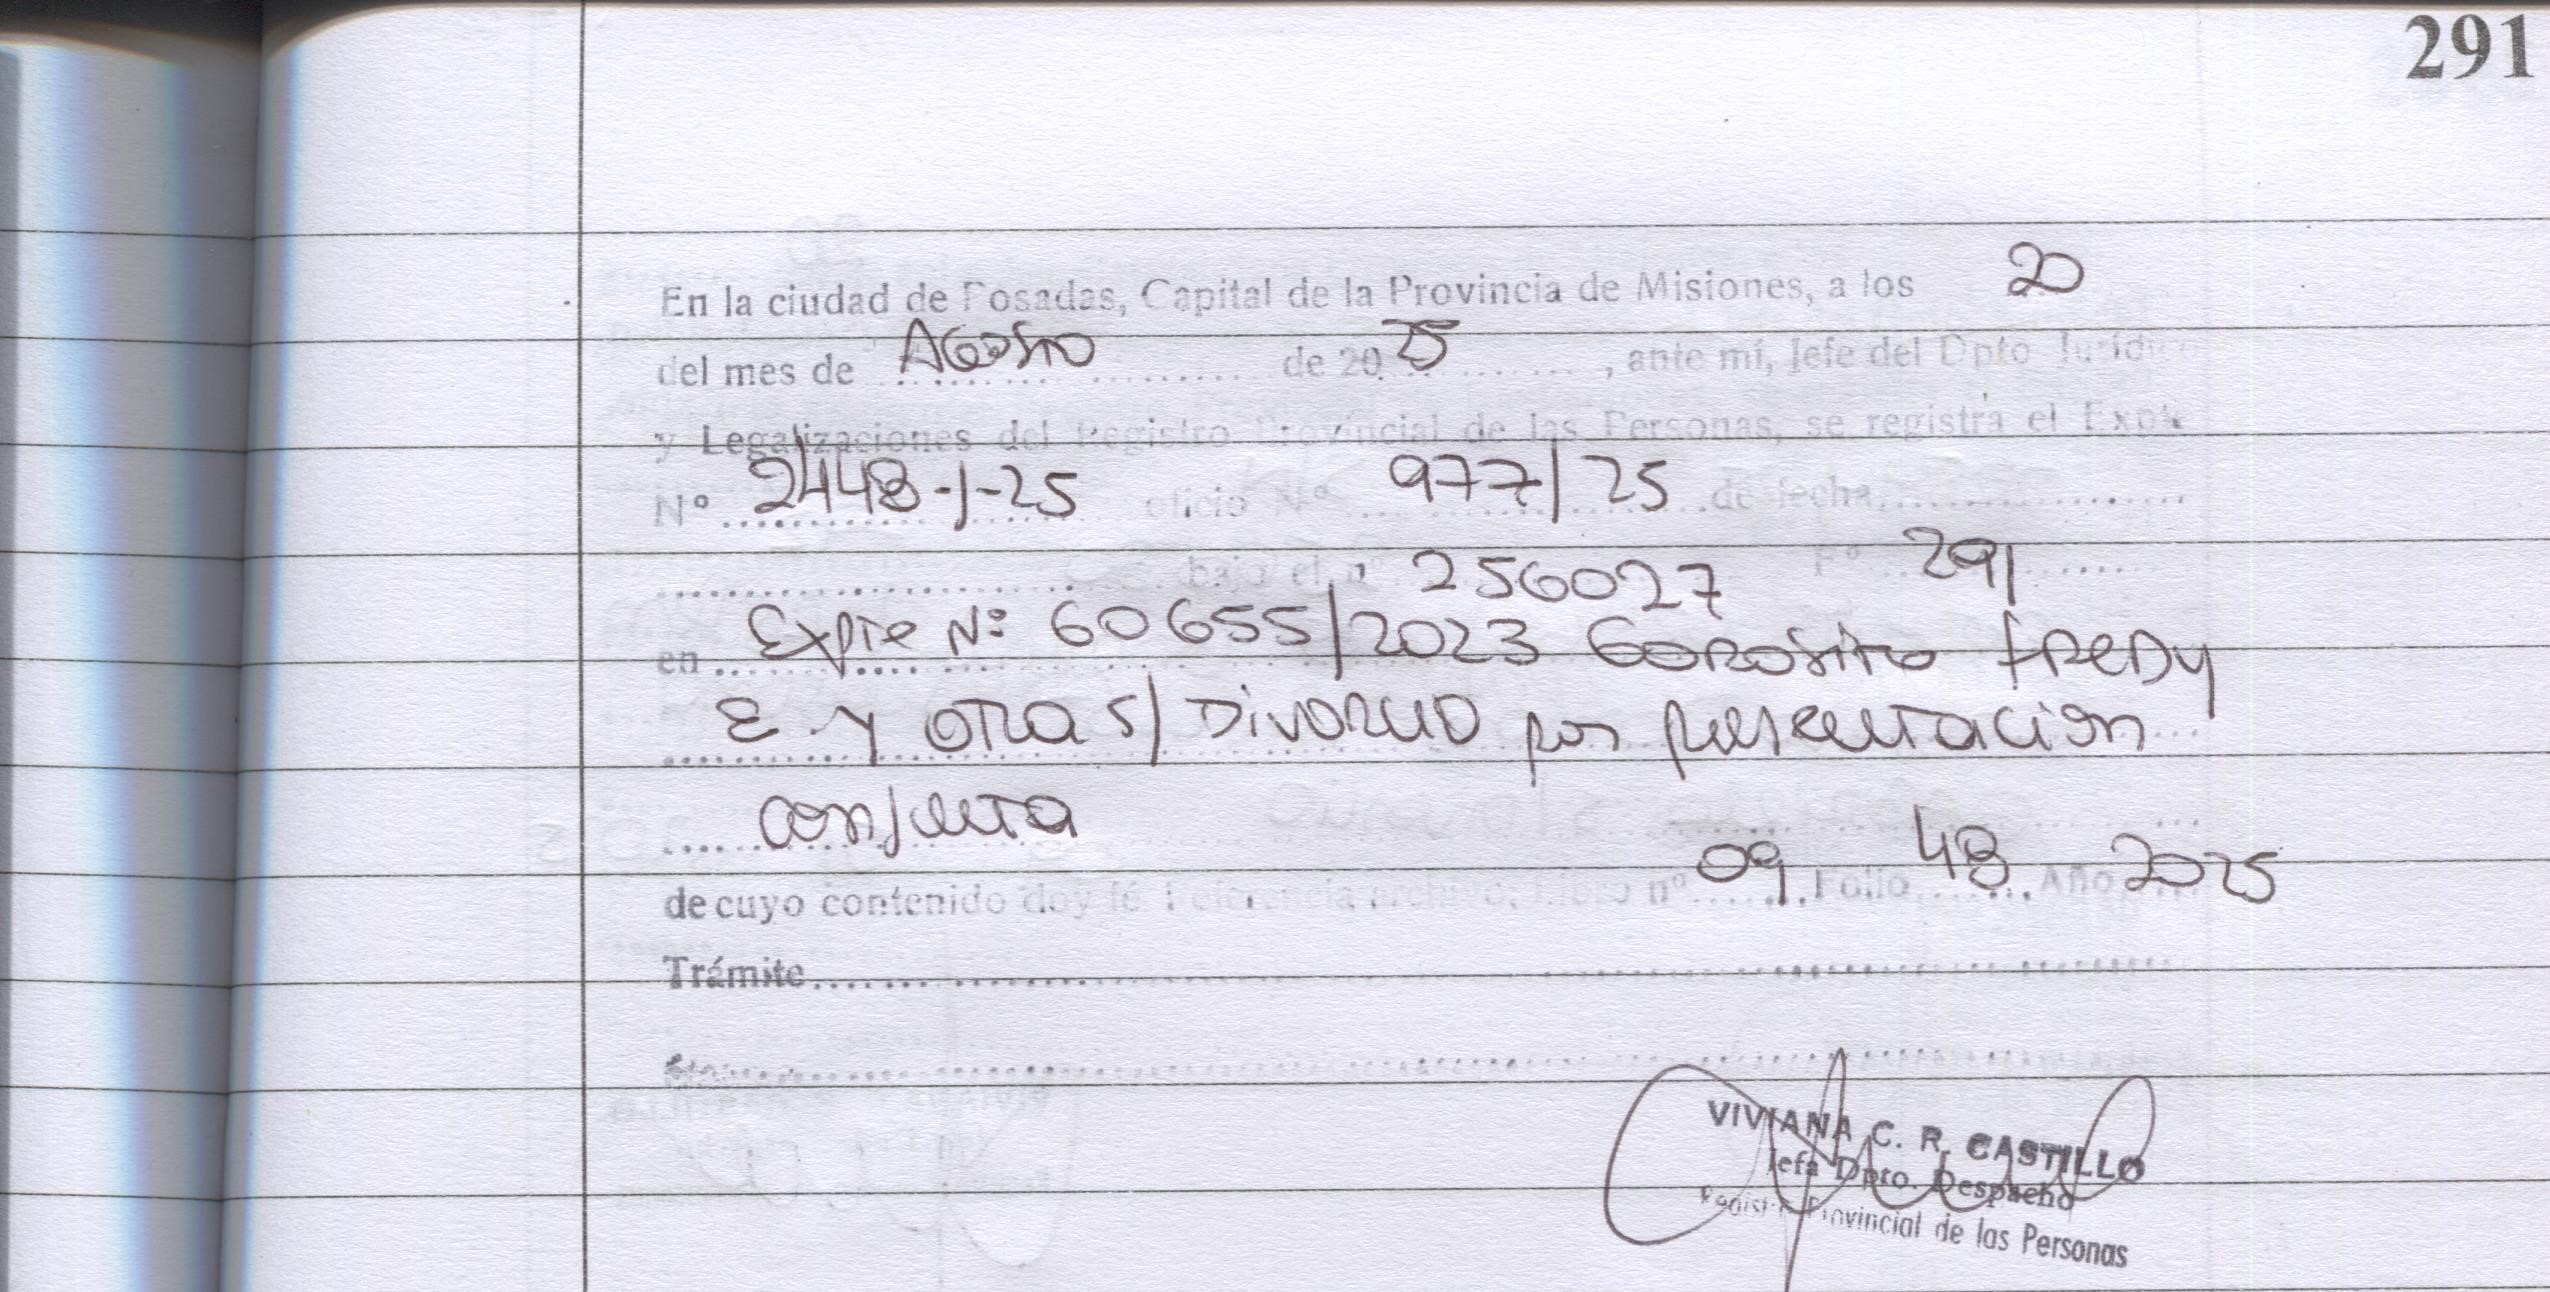 291
En la ciudad de Posadas, Capital de la Provincia de Misiones, a los 20
del mes de Agosto de 20 25, ante mí, Jefe del Dpto Jurídico
y Legalizaciones del Registro Provincial de las Personas, se registra el Expte
Nº 2448-J-25 oficio Nº 977/25 de fecha
bajo el nº 256027 Fº 291
en Expte Nº 60655/2023 Gorosito Fredy
E. y otra s/ Divorcio por presentacion
conjunta
de cuyo contenido doy fé. Referencia archivo: Libro nº 09 Folio 48 Año 2025
Trámite
VIVIANA C. R. CASTILLO
Jefa Dpto. Despacho
Registro Provincial de las Personas